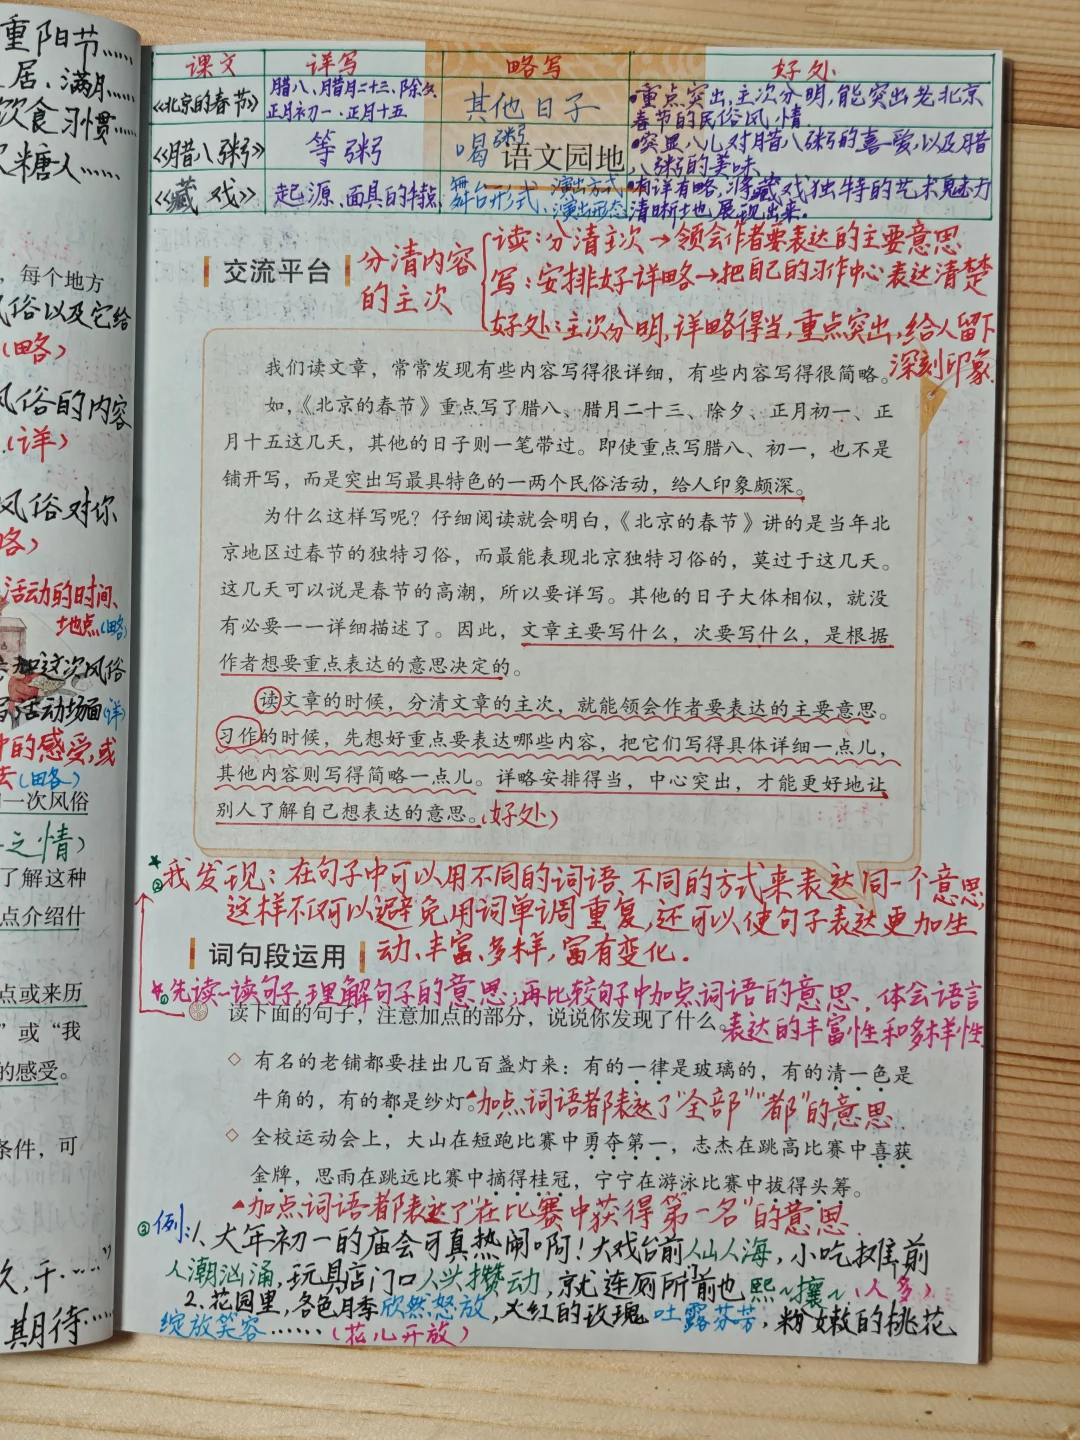 重阳节……
居、满月……
饮食习惯……
糖人……
，每个地方
风俗以及它给
(略)
风俗的内容
(详)
风俗对你
略)
活动的时间、
地点(略)
和这次风俗
活动场面(详)
中的感受,或
去(略)
一次风俗
之情)
了解这种
点介绍什
点或来历
”或“我
的感受。
条件，可
次,千……”
期待……
课文 详写 略写 好处
《北京的春节》 腊八、腊月二十三、除夕、正月初一、正月十五 其他日子 重点突出,主次分明,能突出老北京春节的民俗风情.
《腊八粥》 等粥 喝粥 突显八儿对腊八粥的喜爱,以及腊八粥的美味
《藏戏》 起源、面具的特点 舞台形式、演出方式、演出形态 有详有略,将藏戏独特的艺术魅力清晰地展现出来.
语文园地
交流平台
分清内容的主次
读:分清主次→领会作者要表达的主要意思
写:安排好详略→把自己的习作中心表达清楚
好处:主次分明,详略得当,重点突出,给人留下
深刻印象.
我们读文章，常常发现有些内容写得很详细，有些内容写得很简略。
如，《北京的春节》重点写了腊八、腊月二十三、除夕、正月初一、正
月十五这几天，其他的日子则一笔带过。即使重点写腊八、初一，也不是
铺开写，而是突出写最具特色的一两个民俗活动，给人印象颇深。
为什么这样写呢？仔细阅读就会明白，《北京的春节》讲的是当年北
京地区过春节的独特习俗，而最能表现北京独特习俗的，莫过于这几天。
这几天可以说是春节的高潮，所以要详写。其他的日子大体相似，就没
有必要一一详细描述了。因此，文章主要写什么，次要写什么，是根据
作者想要重点表达的意思决定的。
读文章的时候，分清文章的主次，就能领会作者要表达的主要意思。
习作的时候，先想好重点要表达哪些内容，把它们写得具体详细一点儿，
其他内容则写得简略一点儿。详略安排得当，中心突出，才能更好地让
别人了解自己想表达的意思。(好处)
②我发现:在句子中可以用不同的词语、不同的方式来表达同一个意思,
这样不仅可以避免用词单调重复,还可以使句子表达更加生
动、丰富、多样,富有变化.
词句段运用
①先读一读句子,理解句子的意思;再比较句子中加点词语的意思,体会语言
表达的丰富性和多样性.
读下面的句子，注意加点的部分，说说你发现了什么。
◇ 有名的老铺都要挂出几百盏灯来：有的一律是玻璃的，有的清一色是
牛角的，有的都是纱灯。加点词语都表达了“全部”“都”的意思.
◇ 全校运动会上，大山在短跑比赛中勇夺第一，志杰在跳高比赛中喜获
金牌，思雨在跳远比赛中摘得桂冠，宁宁在游泳比赛中拔得头筹。
加点词语都表达了“在比赛中获得第一名”的意思.
③例:1、大年初一的庙会可真热闹啊!大戏台前人山人海,小吃摊前
人潮汹涌,玩具店门口人头攒动,就连厕所前也熙~攘~.(人多)
2.花园里,各色月季欣然怒放,火红的玫瑰吐露芬芳,粉嫩的桃花
绽放笑容……(花儿开放)